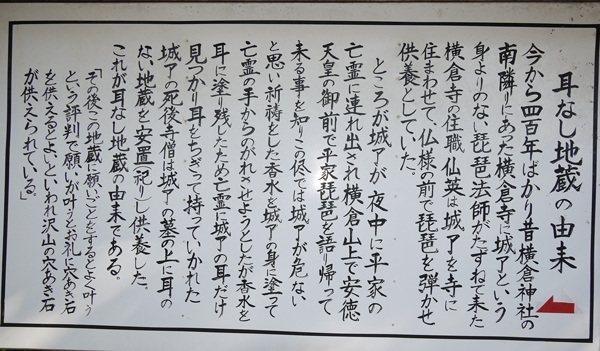 耳なし地蔵の由来
今から四百年ばかり昔横倉神社の
南隣りにあった横倉寺に城了という
身よりのない琵琶法師がたずねて来た
横倉寺の住職仙英は城了を寺に
住まわせて、仏様の前で琵琶を弾かせ
供養としていた。
ところが城了が夜中に平家の
亡霊に連れ出され横倉山上で安徳
天皇の御前で平家琵琶を語り帰って
来る事を知りこの侭では城了が危ない
と思い祈祷をした香水を城了の身に塗って
亡霊の手からのがれさせようとしたが香水を
耳に塗り残したため亡霊に城了の耳だけ
見つかり耳をちぎって持っていかれた
城了の死後寺僧は城了の墓の上に耳の
ない地蔵を安置(祀り)し供養した。
これが耳なし地蔵の由来である。
「その後この地蔵に願いごとをするとよく叶う
という評判で願いが叶うとお礼に穴あき石
を供えるとよいといわれ沢山の穴あき石
が供えられている。」